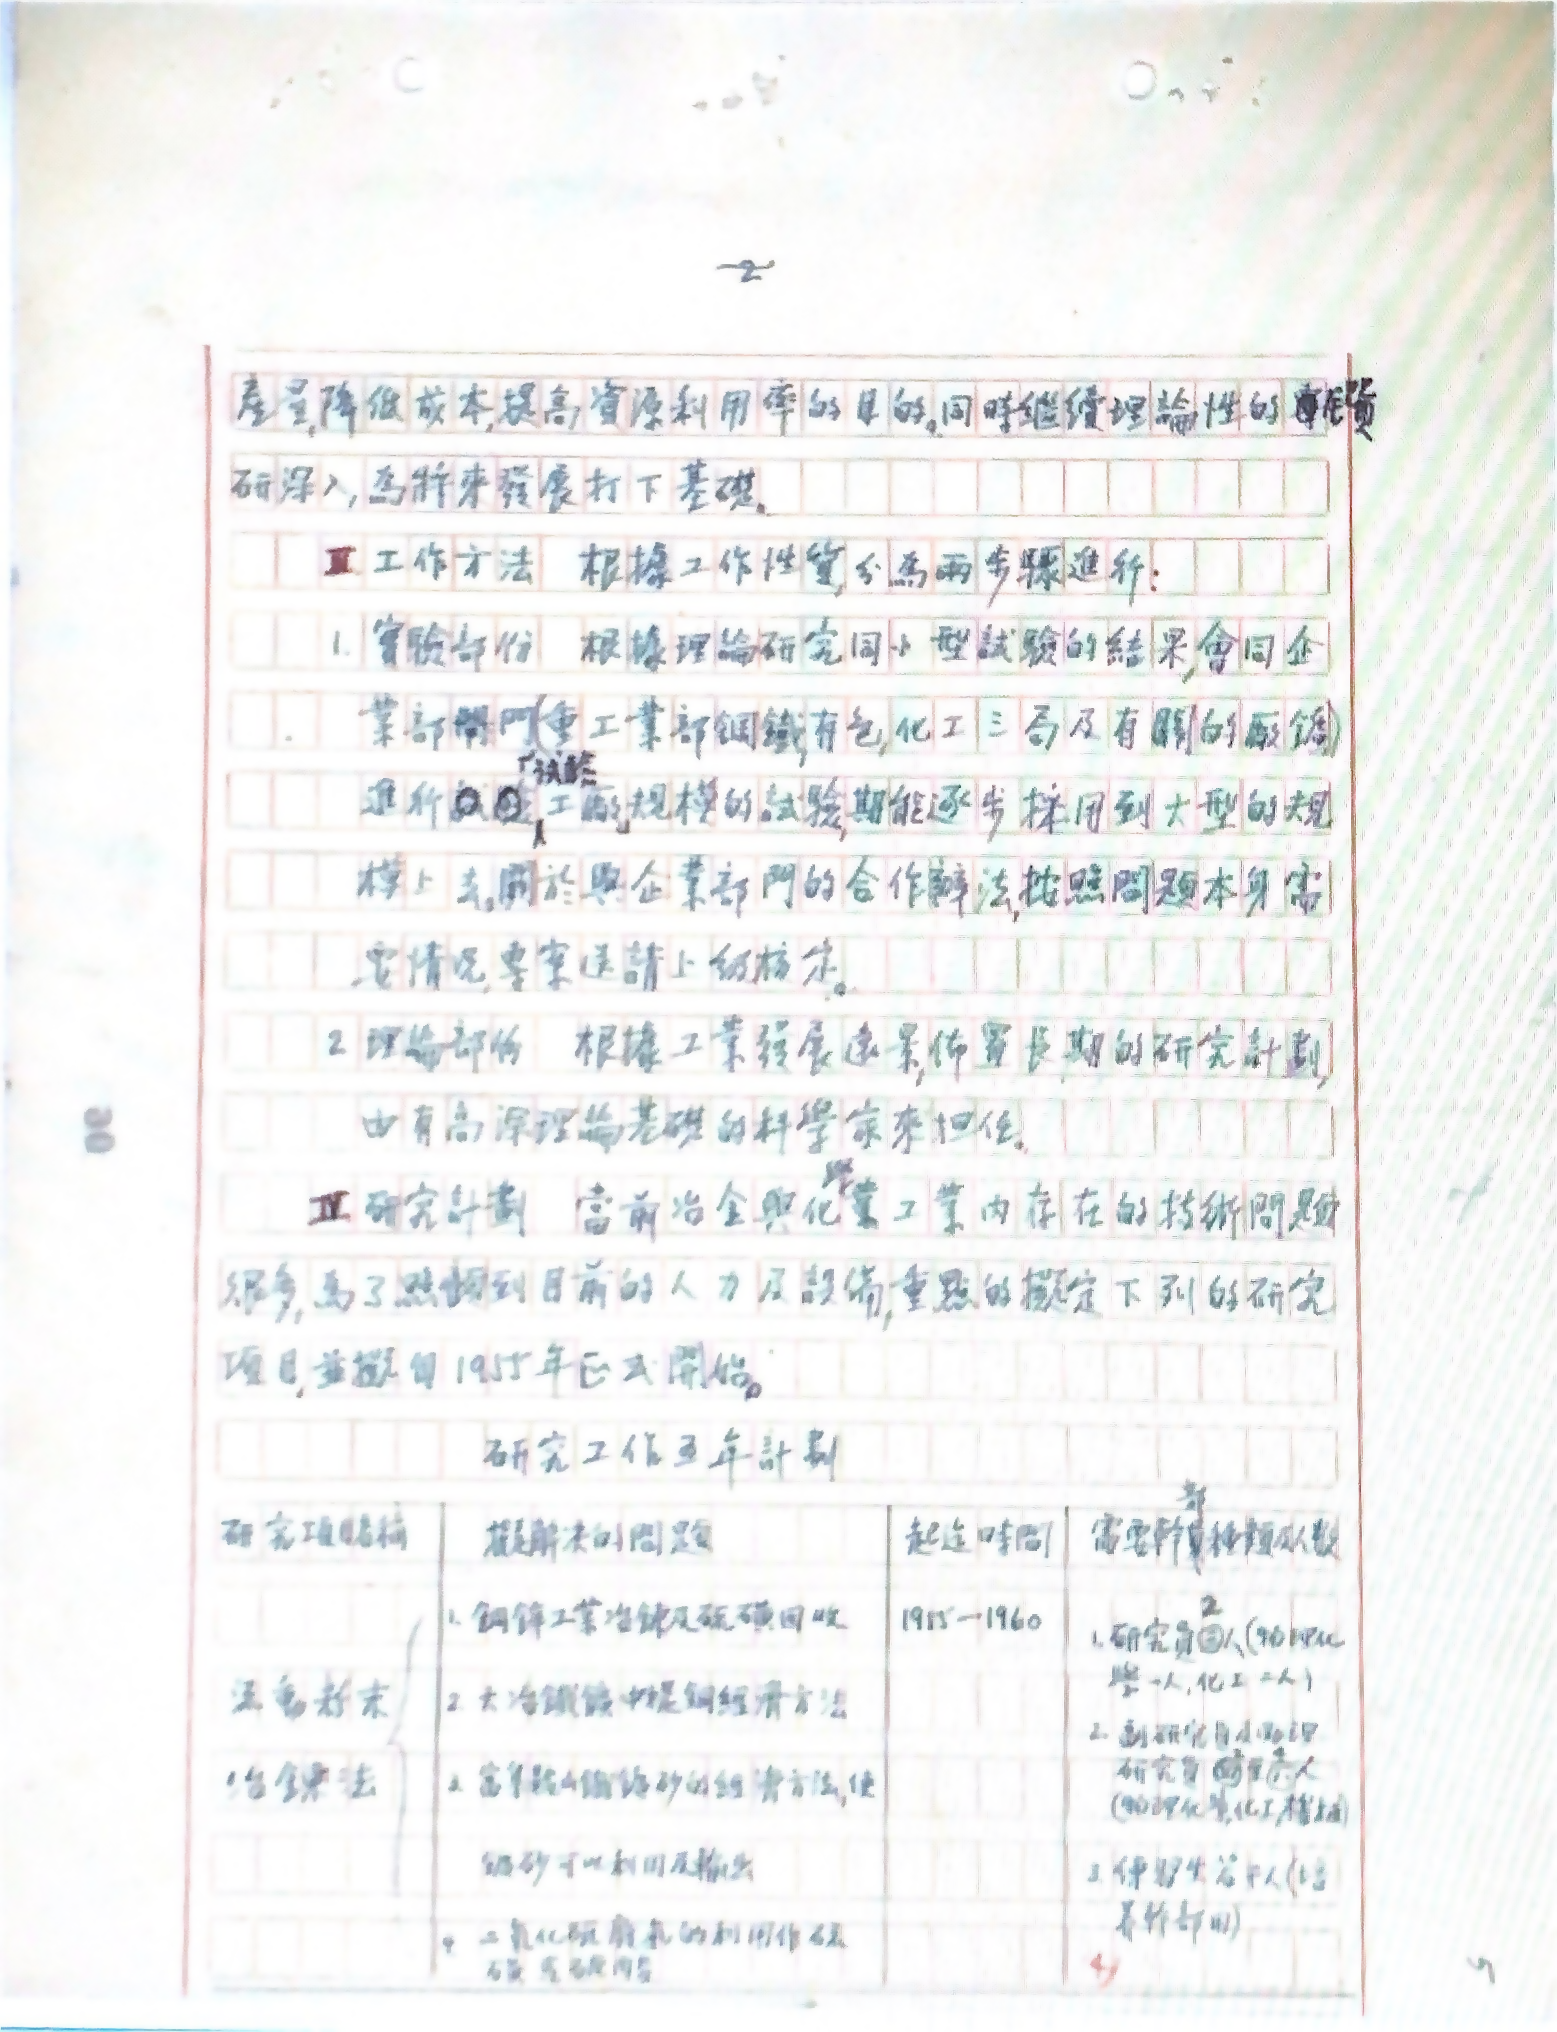 2
產量,降低成本,提高資源利用率的目的。同時繼續理論性的
研深入,為將來發展打下基礎。
Ⅲ 工作方法 根據工作性質,分為兩步驟進行:
1. 實驗部份 根據理論研究同小型試驗的結果,會同企
業部門(重工業部鋼鐵,有色,化工三局及有關的廠礦)
進行「試驗工廠」規模的試驗,期能逐步採用到大型的規
模上去。關於與企業部門的合作辦法,按照問題本身需
要情況,專案送請上級核定。
2 理論部份 根據工業發展遠景,佈置長期的研究計劃,
由有高深理論基礎的科學家來担任。
Ⅳ 研究計劃 當前冶金與化學工業內存在的技術問題
很多,為了照顧到目前的人力及設備,重點的擬定下列的研究
項目,並擬自1955年正式開始。
研究工作五年計劃
研究項目名稱 擬解決的問題 起迄時間 需要幹部種類及人數
流動粉末
冶鍊法
1. 銅鋅工業冶鍊及硫磺回收
2. 大冶鐵礦中提銅經濟方法
3. 富集鞍山鐵礦砂的經濟方法,使
礦砂可以利用及輸出
4 二氧化硫廢氣的利用作硫
1955—1960
1. 研究員2人(物理化
學一人,化工二人)
2. 副研究員及助理
研究員 人
(物理化學,化工,機械)
3. 練習生若干人(培
養幹部用)
30
5